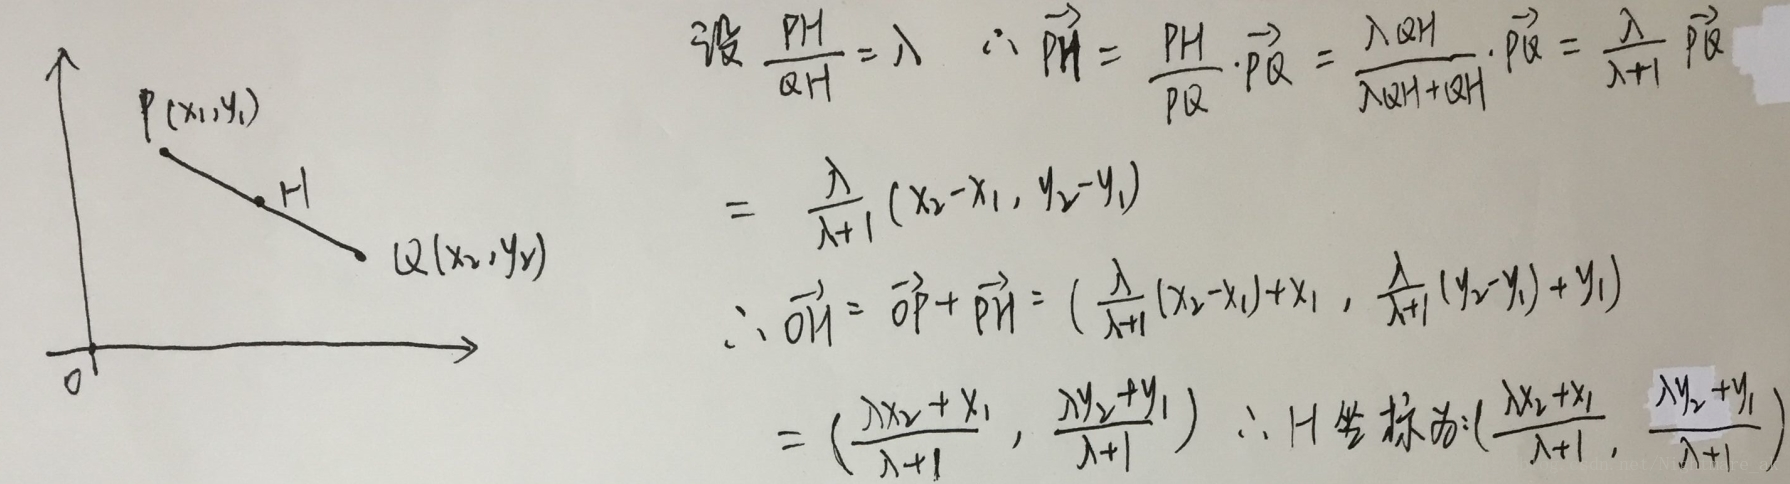 P(x₁,y₁)
H
Q(x₂,y₂)
O
设 PH/QH = λ ∴ \vec{PH} = PH/PQ · \vec{PQ} = λQH/(λQH+QH) · \vec{PQ} = λ/(λ+1) \vec{PQ}
= λ/(λ+1) (x₂-x₁, y₂-y₁)
∴ \vec{OH} = \vec{OP} + \vec{PH} = ( λ/(λ+1) (x₂-x₁)+x₁ , λ/(λ+1) (y₂-y₁)+y₁)
= ( (λx₂+x₁)/(λ+1) , (λy₂+y₁)/(λ+1) ) ∴ H坐标为:( (λx₂+x₁)/(λ+1) , (λy₂+y₁)/(λ+1) )